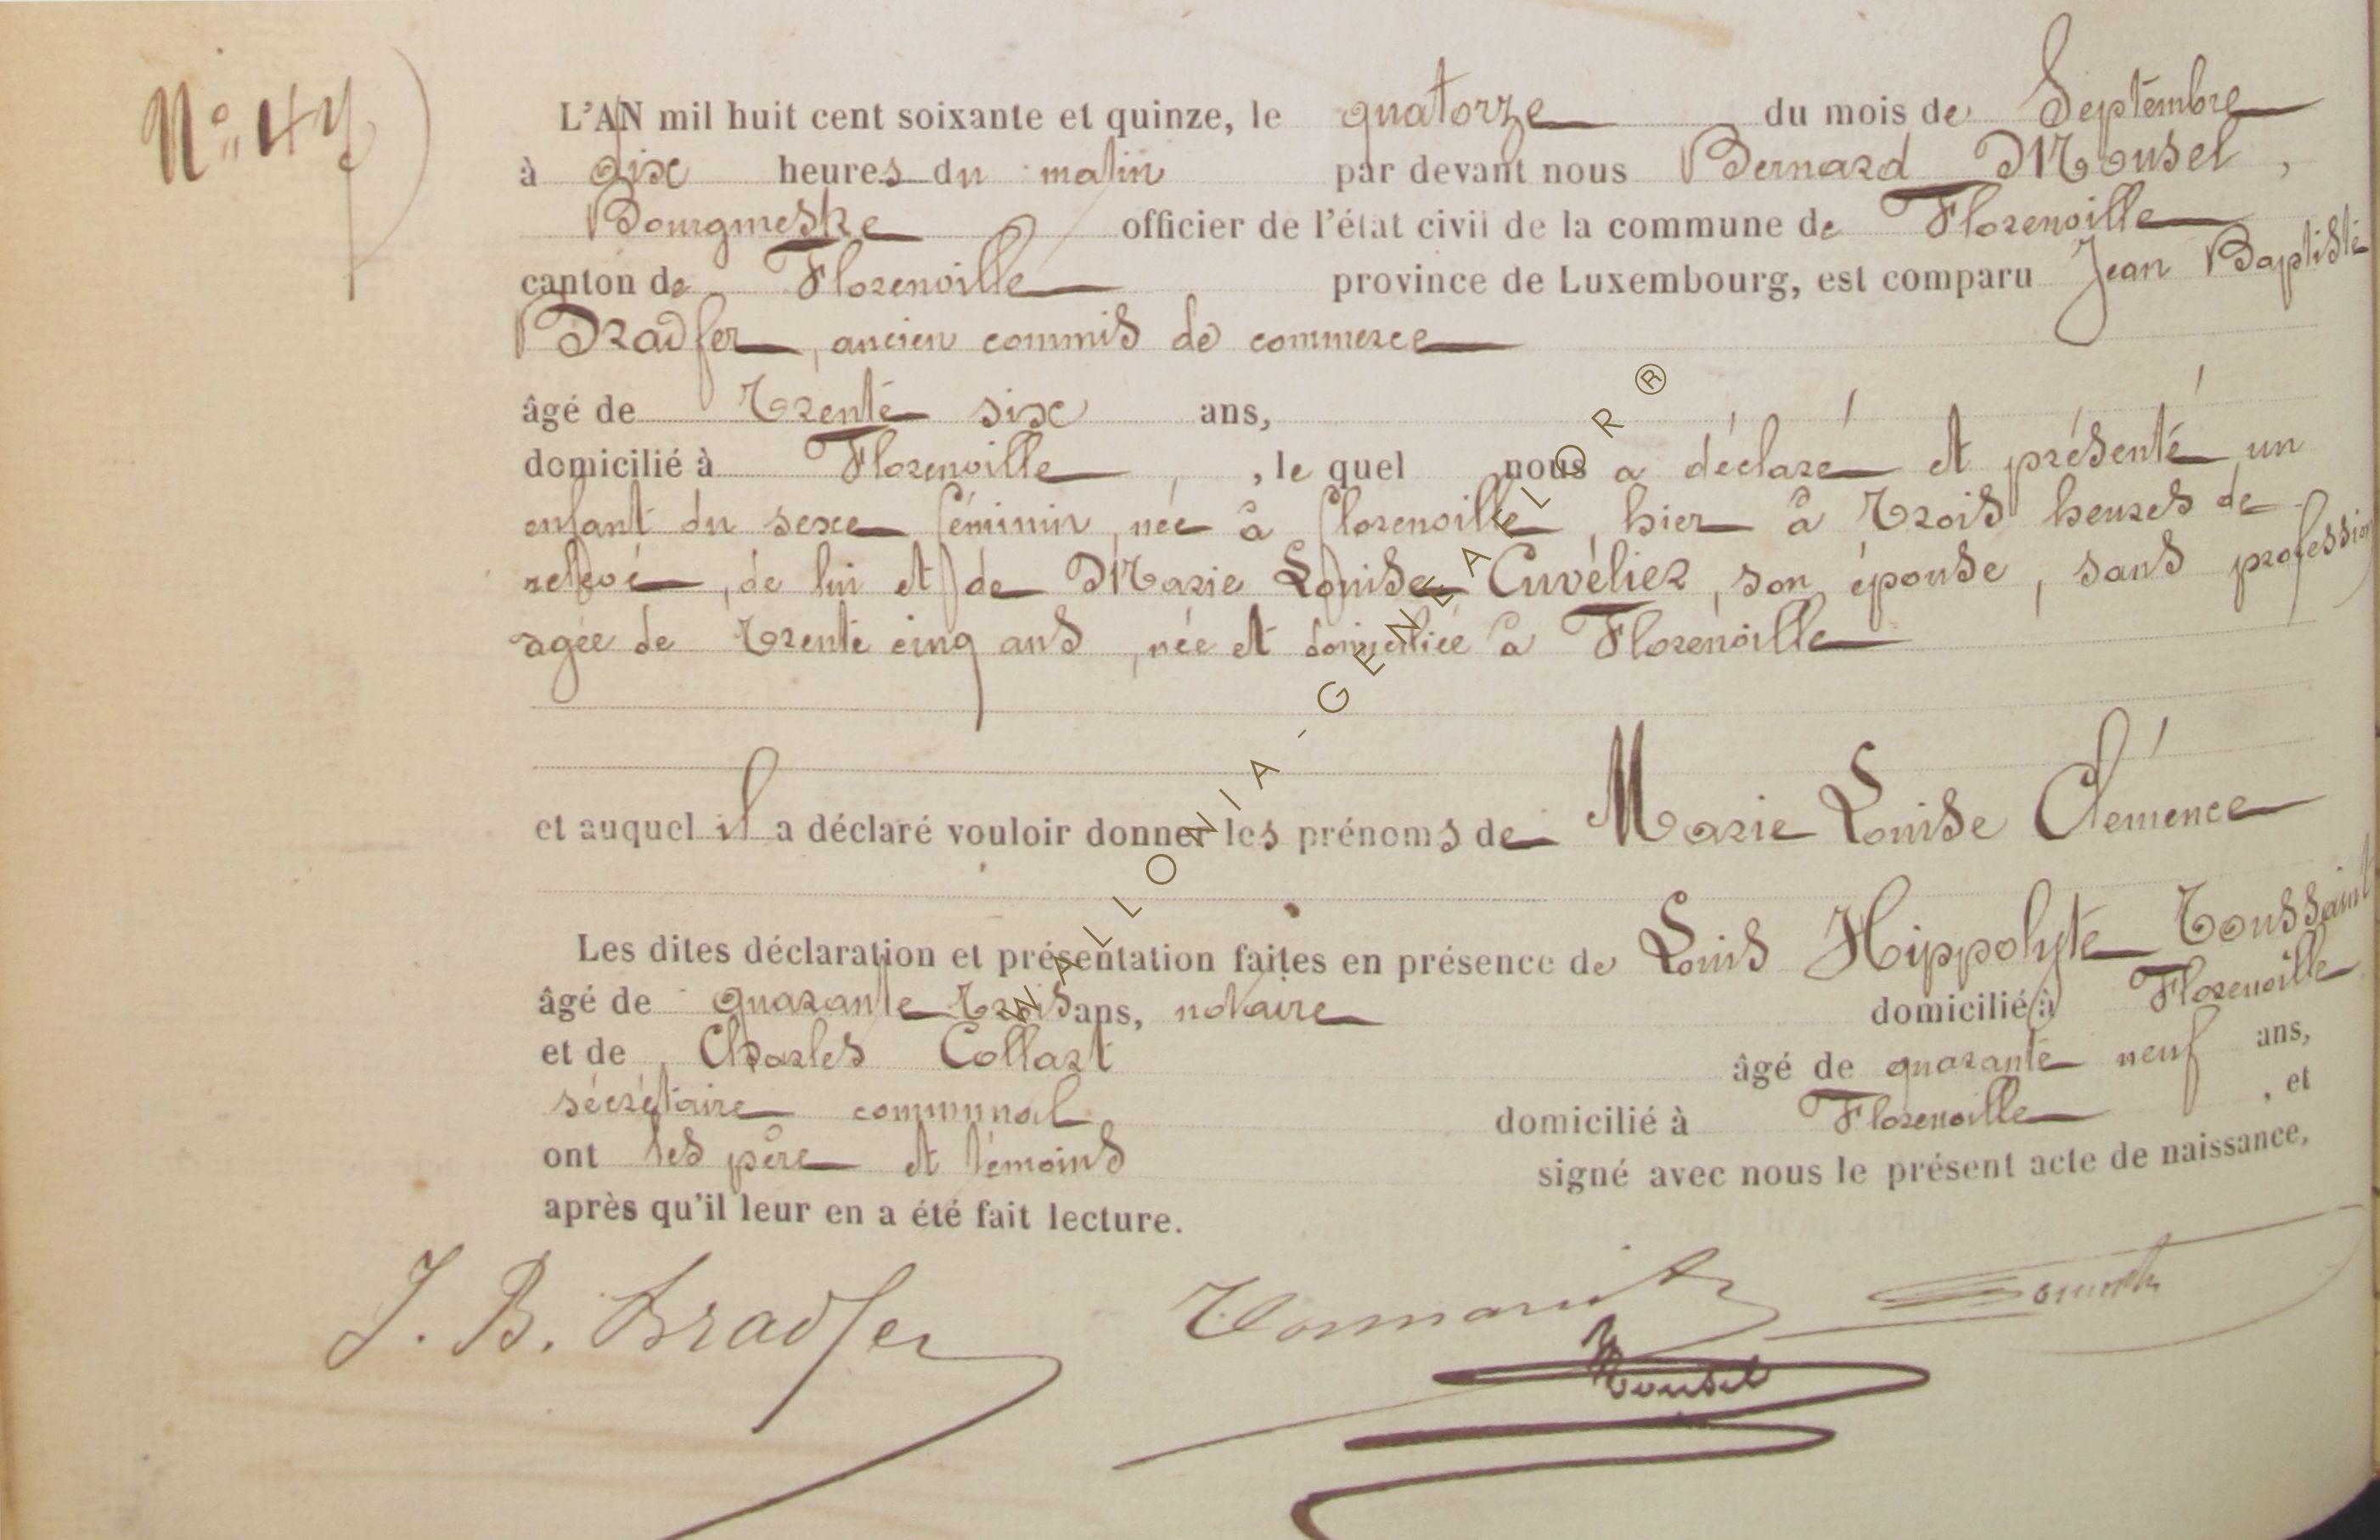 N° 47
L'AN mil huit cent soixante et quinze, le quatorze du mois de Septembre
à dix heures du matin par devant nous Bernard Mousel,
Bourgmestre officier de l'état civil de la commune de Florenville
canton de Florenville province de Luxembourg, est comparu Jean Baptiste
Bradfer, ancien commis de commerce
âgé de trente six ans,
domicilié à Florenville, le quel nous a déclaré et présenté un
enfant du sexe féminin, née à florenville, hier à trois heures de
relevée, de lui et de Marie Louise Cuvélier, son épouse, sans profession
agée de trente cinq ans, née et domiciliée à Florenville
et auquel il a déclaré vouloir donner les prénoms de Marie Louise Clémence
Les dites déclaration et présentation faites en présence de Louis Hippolyte Toussaint
âgé de quarante trois ans, notaire domicilié à Florenville
et de Charles Collart âgé de quarante neuf ans,
sécrétaire communal domicilié à Florenville, et
ont les père et témoins signé avec nous le présent acte de naissance,
après qu'il leur en a été fait lecture.
J. B. Bradfer
Mousel
WALLONIA-GENEAELOR ®